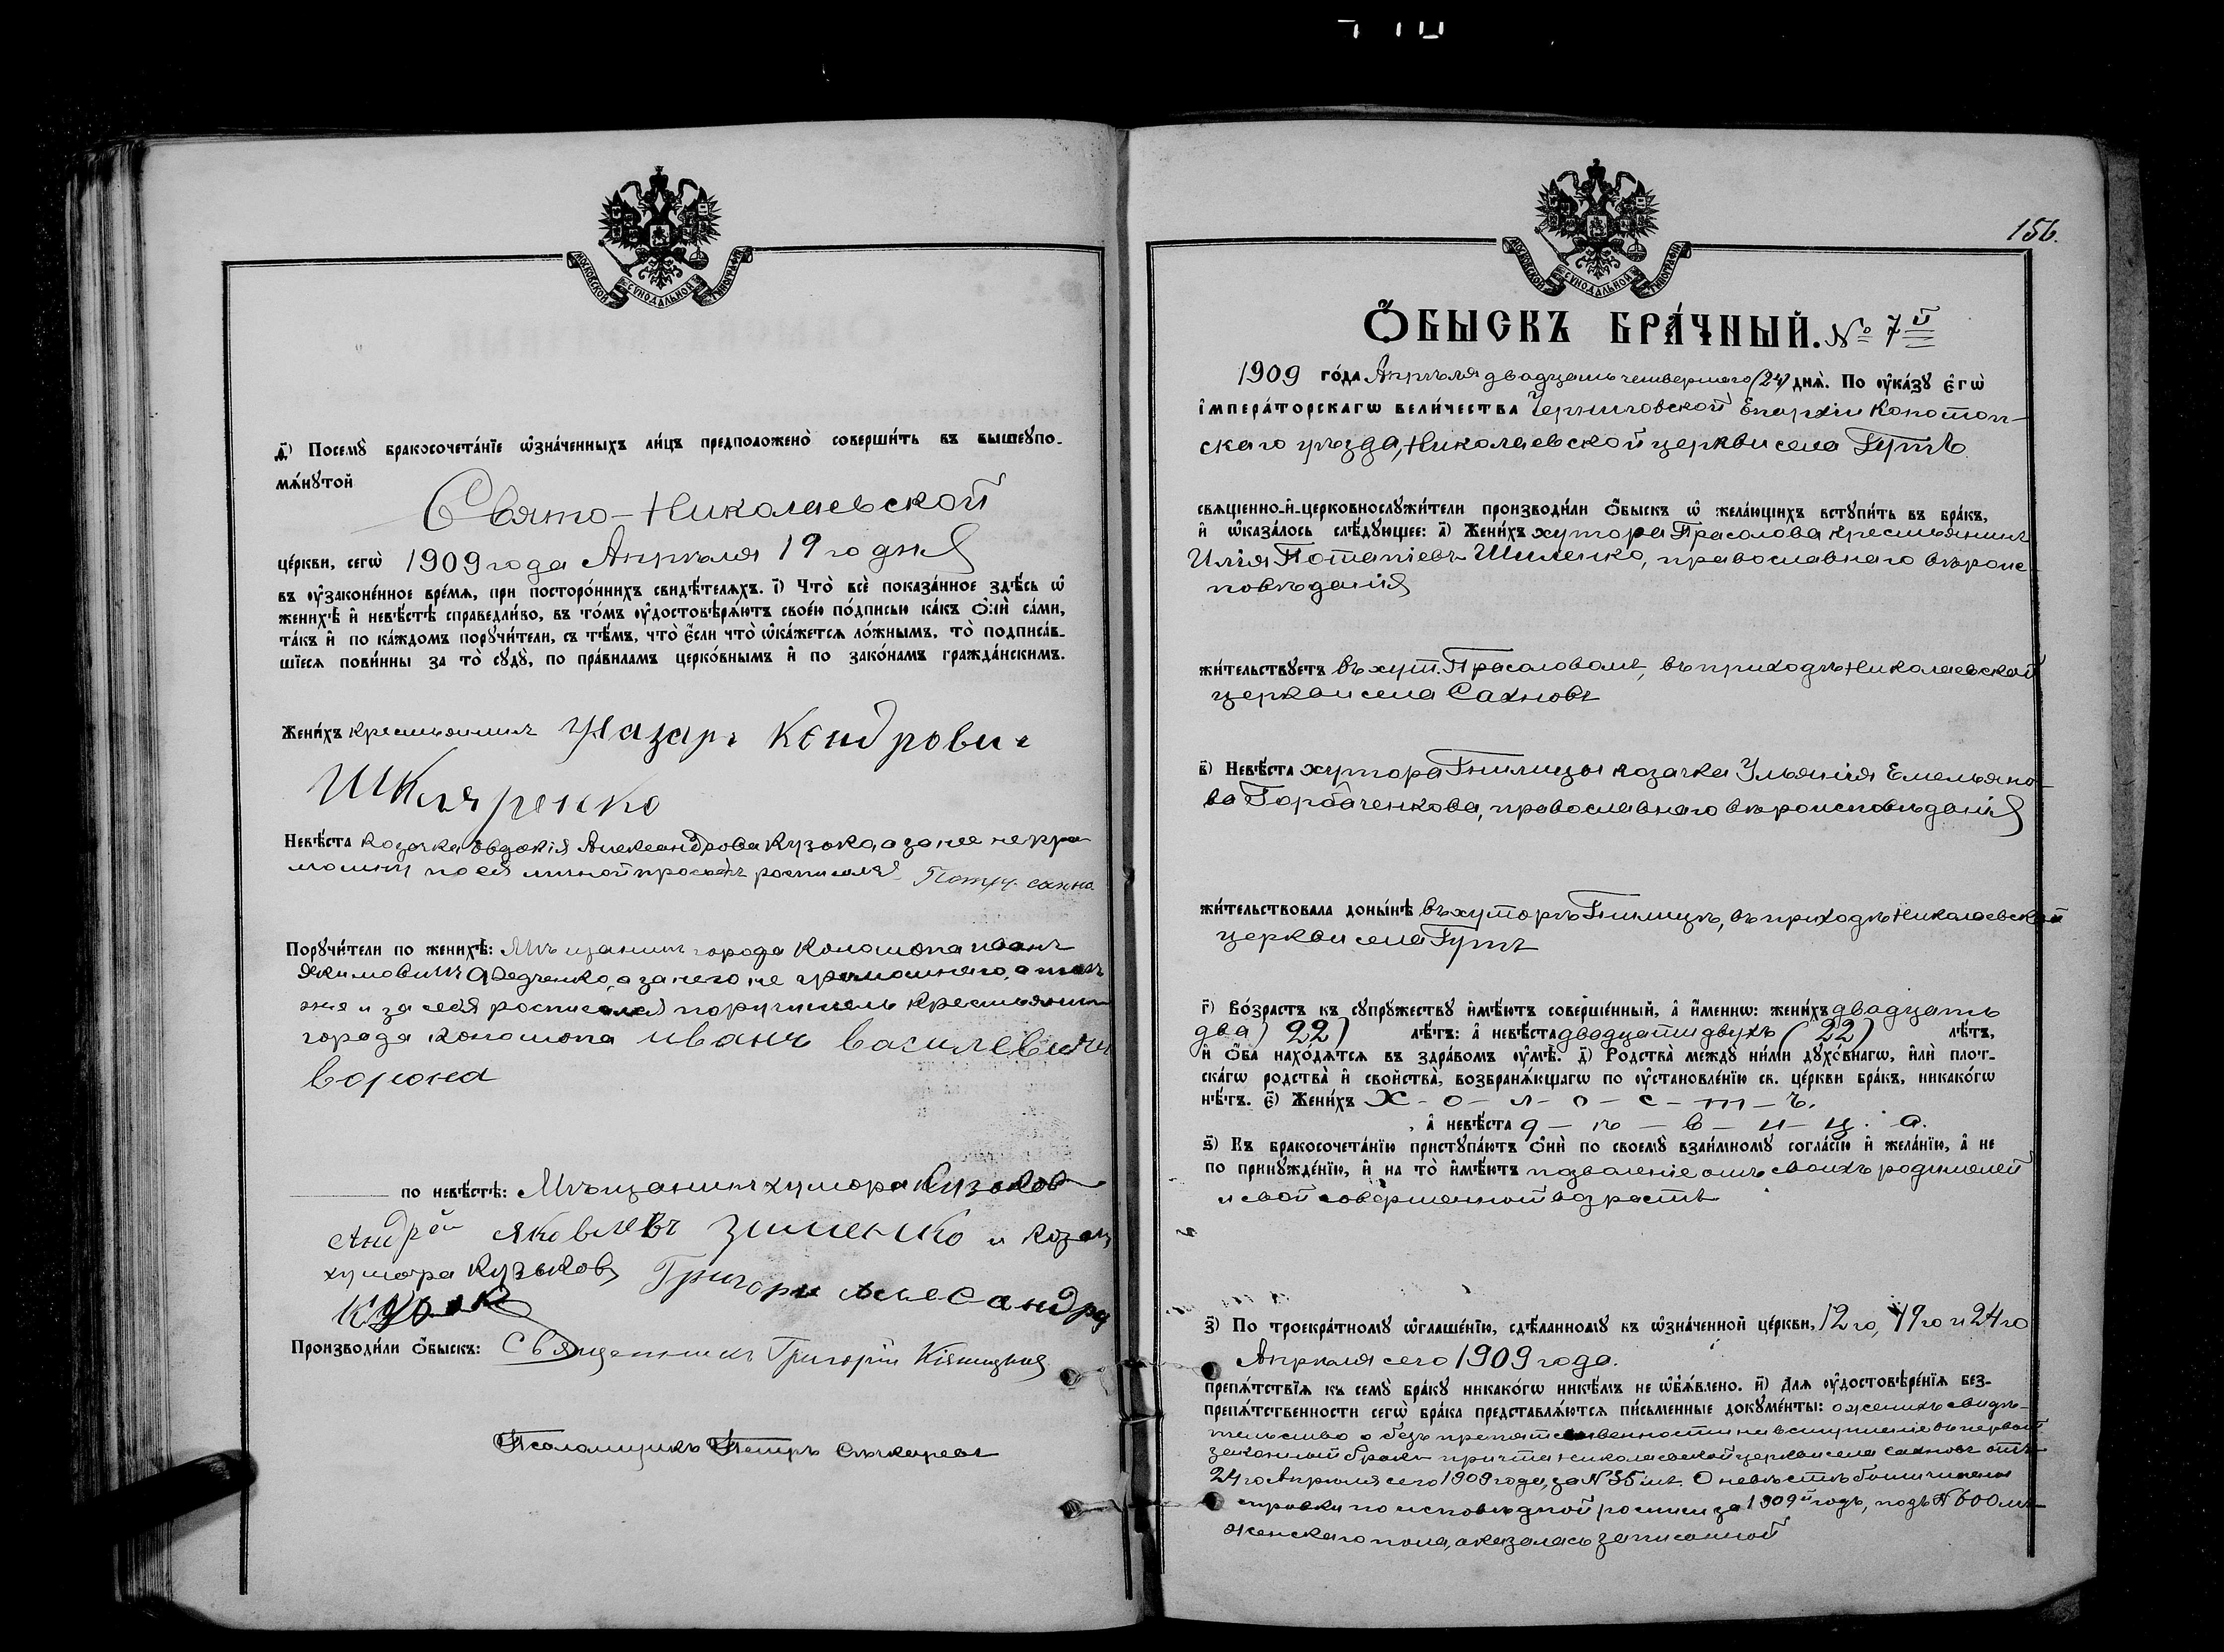 МОСКОВСКОЙ СѴНОДАЛЬНОЙ ТИПОГРАФІИ
д҃і) Посемꙋ̀ бракосочета́нїе ѡ҆зна́ченныхъ ли́цъ предположено̀ соверши́ть въ вышеꙋпо-
мѧ́нꙋтой
Свято-Николаевской
це́ркви, сегѡ̀ 1909 года Апрѣля 19 го дня
въ ᲂу҆законе́нное вре́мѧ, при посторо́ннихъ свидѣ́телѧхъ. і҃) Что̀ всѐ пока́занное здѣ́сь ѡ҆
женихѣ̀ и҆ невѣ́стѣ справедли́во, въ то́мъ ᲂу҆достовѣрѧ́ютъ свое́ю по́дписью ка́къ ѻ҆нѝ са́ми,
та́къ и҆ по ка́ждомъ порꙋчи́тели, съ тѣ́мъ, что̀ є҆́сли что̀ ѡ҆ка́жетсѧ ло́жнымъ, то̀ подписа́в-
шїесѧ пови́нны за то̀ сꙋдꙋ̀, по пра́виламъ церко́внымъ и҆ по зако́намъ гражда́нскимъ.
Жени́хъ крестьянинъ Назаръ Кендрович
Шкляренко
Невѣ́ста козачка Евдокія Александрова Кузока, а за нее негра-
мотну по ея личной просьбѣ росписался
Порꙋчи́тели по женихѣ̀: Мѣщанинъ города Конотопа Иванъ
Якимовичъ Авдченко, а за него не грамотнаго, а так
же и за себя росписался поручитель крестьянин
города Конотопа Иванъ Василевичъ
Ворона
по невѣ́стѣ: Мѣщанинъ хутора Кузьков
Андрей Яковлевъ Зименко и козак
хутора Кузьковъ Григори Алесандро
Производи́ли ѻ҆́быскъ: Священникъ Григорій
Псаломщикъ Петръ
156.
МОСКОВСКОЙ СѴНОДАЛЬНОЙ ТИПОГРАФІИ
Ѻ҆́БЫСКЪ БРА́ЧНЫЙ. № 7й
1909 го́да Апрѣля двадцать четвертаго (24) днѧ̀. По ᲂу҆ка́зꙋ є҆гѡ̀
і҆мпера́торскагѡ вели́чества Черниговской Епархіи Конотоп-
скаго уѣзда, Николаевской церкви села Гутъ
свѧще́нно-и҆-церковнослꙋжи́тели производи́ли ѻ҆́быскъ ѡ҆ жела́ющихъ встꙋпи́ть въ бра́къ,
и҆ ѡ҆каза́лось слѣ́дꙋющее: а҃) Жени́хъ хутора Прасолова крестьянинъ
Илія Потапіевъ Шиленко, православнаго вѣроис-
повѣданія
жи́тельствꙋетъ въ хут. Прасоловомъ, въ приходѣ Николаевской
церкви села Сахновъ
в҃) Невѣ́ста хутора Гнилицы козачка Ульянія Емельяно-
ва Горбаченкова, православнаго вѣроисповѣданія
жи́тельствовала доны́нѣ въ хуторѣ Гнилицѣ, въ приходѣ Николаевской
церкви села Гутъ
г҃) Во́зрастъ къ сꙋпрꙋ́жествꙋ и҆мѣ́ютъ соверше́нный, а҆ и҆́меннѡ: жени́хъ двадцать
два (22) лѣ́тъ: а҆ невѣ́ста двадцати двухъ (22) лѣ́тъ,
и҆ ѻ҆́ба нахо́дѧтсѧ въ здра́вомъ ᲂу҆мѣ̀. д҃) Родства̀ междꙋ̀ ни́ми дꙋхо́внагѡ, и҆лѝ плот-
ска́гѡ родства̀ и҆ свойства̀, возбранѧ́ющагѡ по ᲂу҆становле́нїю св. це́ркви бра́къ, никако́гѡ
нѣ́тъ. є҃) Жени́хъ х-о-л-о-с-т-ъ.
а҆ невѣ́ста д-ѣ-в-и-ц-а.
ѕ҃) Къ бракосочета́нїю пристꙋпа́ютъ ѻ҆нѝ по своемꙋ̀ взаи́мномꙋ согла́сїю и҆ жела́нїю, а҆ не
по принꙋжде́нїю, и҆ на то̀ и҆мѣ́ютъ позволеніе отъ своихъ родителей
и свой совершенный возрастъ
з҃) По троекра́тномꙋ ѡ҆глаше́нїю, сдѣ́ланномꙋ въ ѡ҆зна́ченной це́ркви, 12 го, 19 го и 24 го
Апрѣля сего 1909 года.
препѧ́тствїѧ къ семꙋ̀ бра́кꙋ никако́гѡ никѣ́мъ не ѡ҆б̾ѧ́влено. и҃) Длѧ ᲂу҆достовѣре́нїѧ без-
препѧ́тственности сегѡ̀ бра́ка представлѧ́ютсѧ пи́сьменные докꙋме́нты: о женихѣ свидѣ-
тельство о безъ препятственности на вступленіе въ первый
законный бракъ причта Николаевской церкви села Сахновъ отъ
24 го Апрѣля сего 1909 года, за № 35 мъ. О невѣстѣ была чинена
справка по исповѣдной росписи за 1909й годъ, подъ № 600 мъ
женскаго пола, оказалась записанной